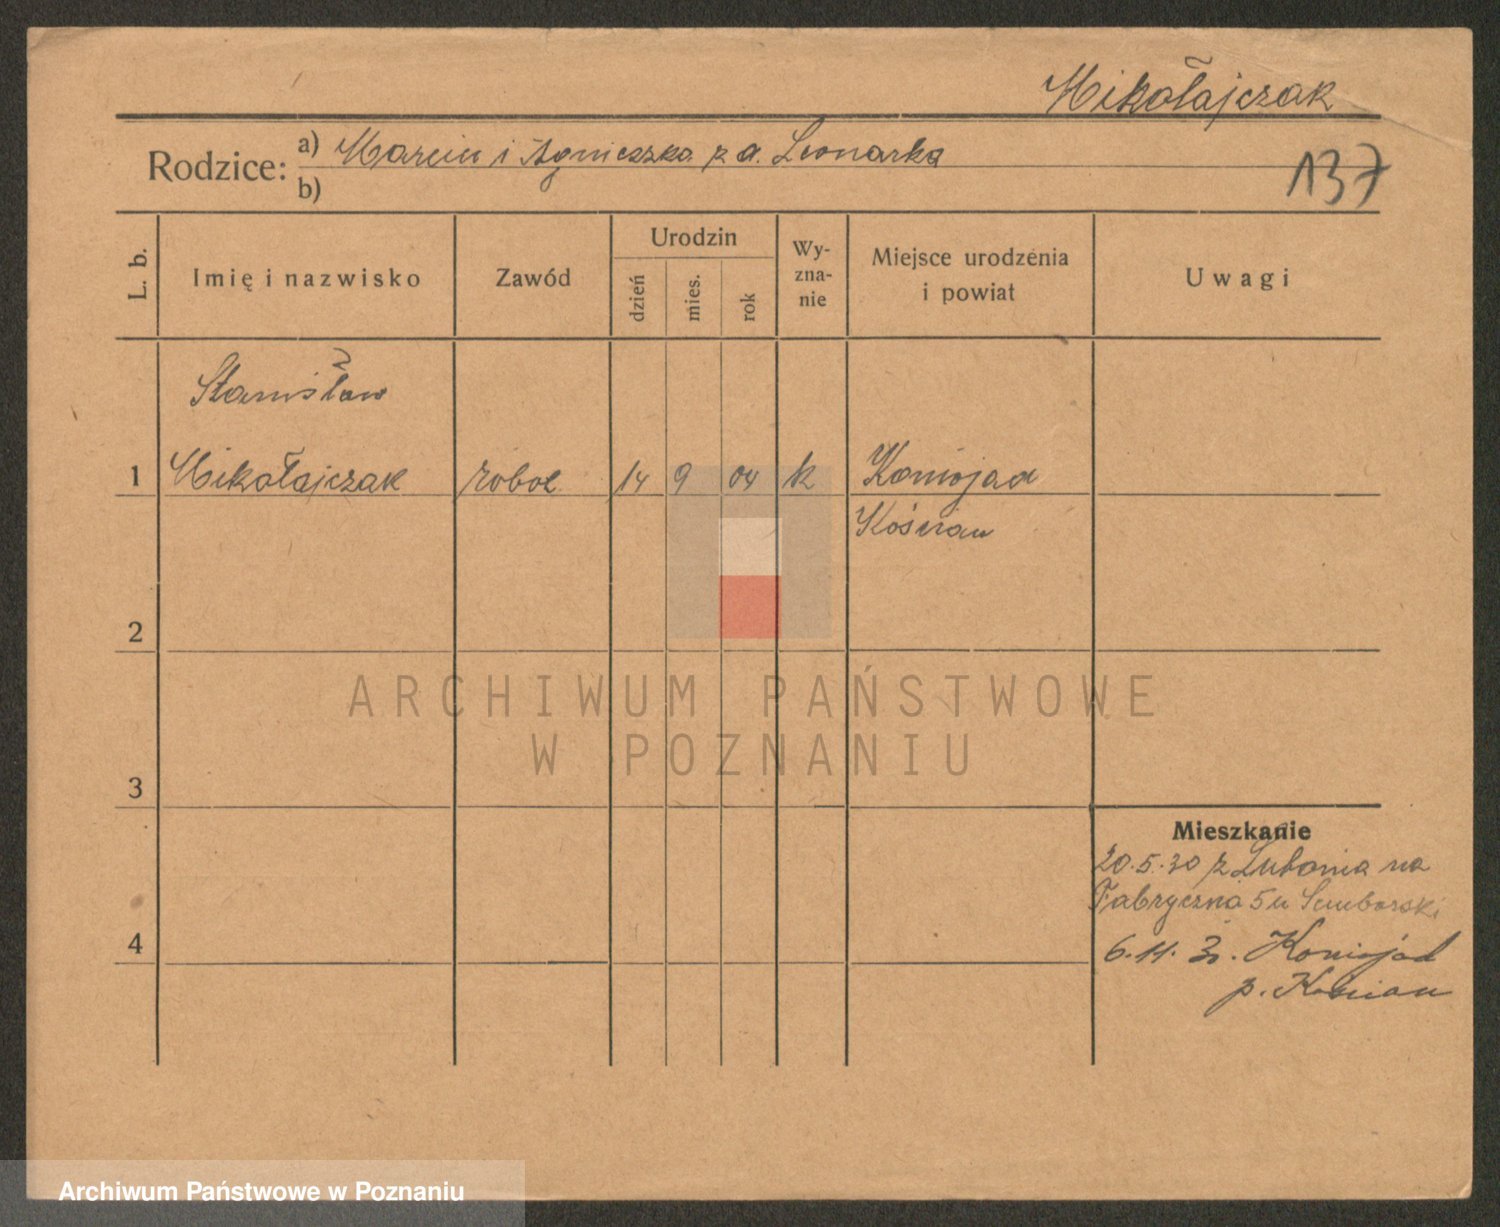 Mikołajczak
Rodzice: a) Marcin i Agnieszka z d. Leonarka
b)
137
L. b.
Imię i nazwisko
Zawód
Urodzin
dzień
mies.
rok
Wy-
zna-
nie
Miejsce urodzenia
i powiat
Uwagi
Stanisław
1 Mikołajczak robot. 14 9 04 k Koniojad
Kościan
2
3
4
Mieszkanie
20.5.30 z Lubonia na
Fabryczna 5 u
6.11. Koniojad
p. Kościan
ARCHIWUM PAŃSTWOWE
W POZNANIU
Archiwum Państwowe w Poznaniu